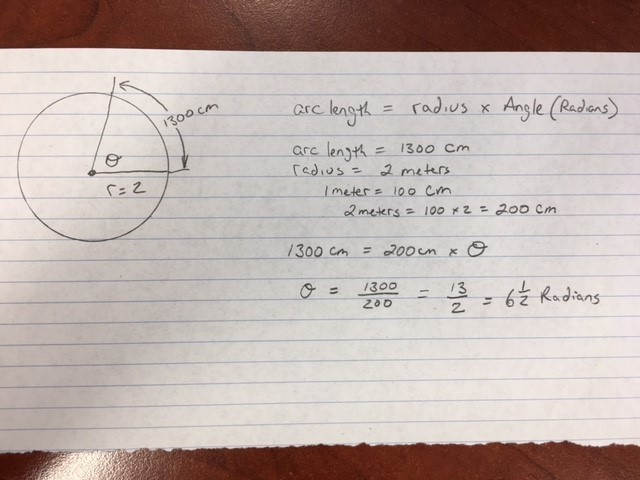 1300 cm
θ
r = 2
arc length = radius x Angle (Radians)
arc length = 1300 cm
radius = 2 meters
1 meter = 100 cm
2 meters = 100 x 2 = 200 cm
1300 cm = 200 cm x θ
θ = 1300/200 = 13/2 = 6 1/2 Radians